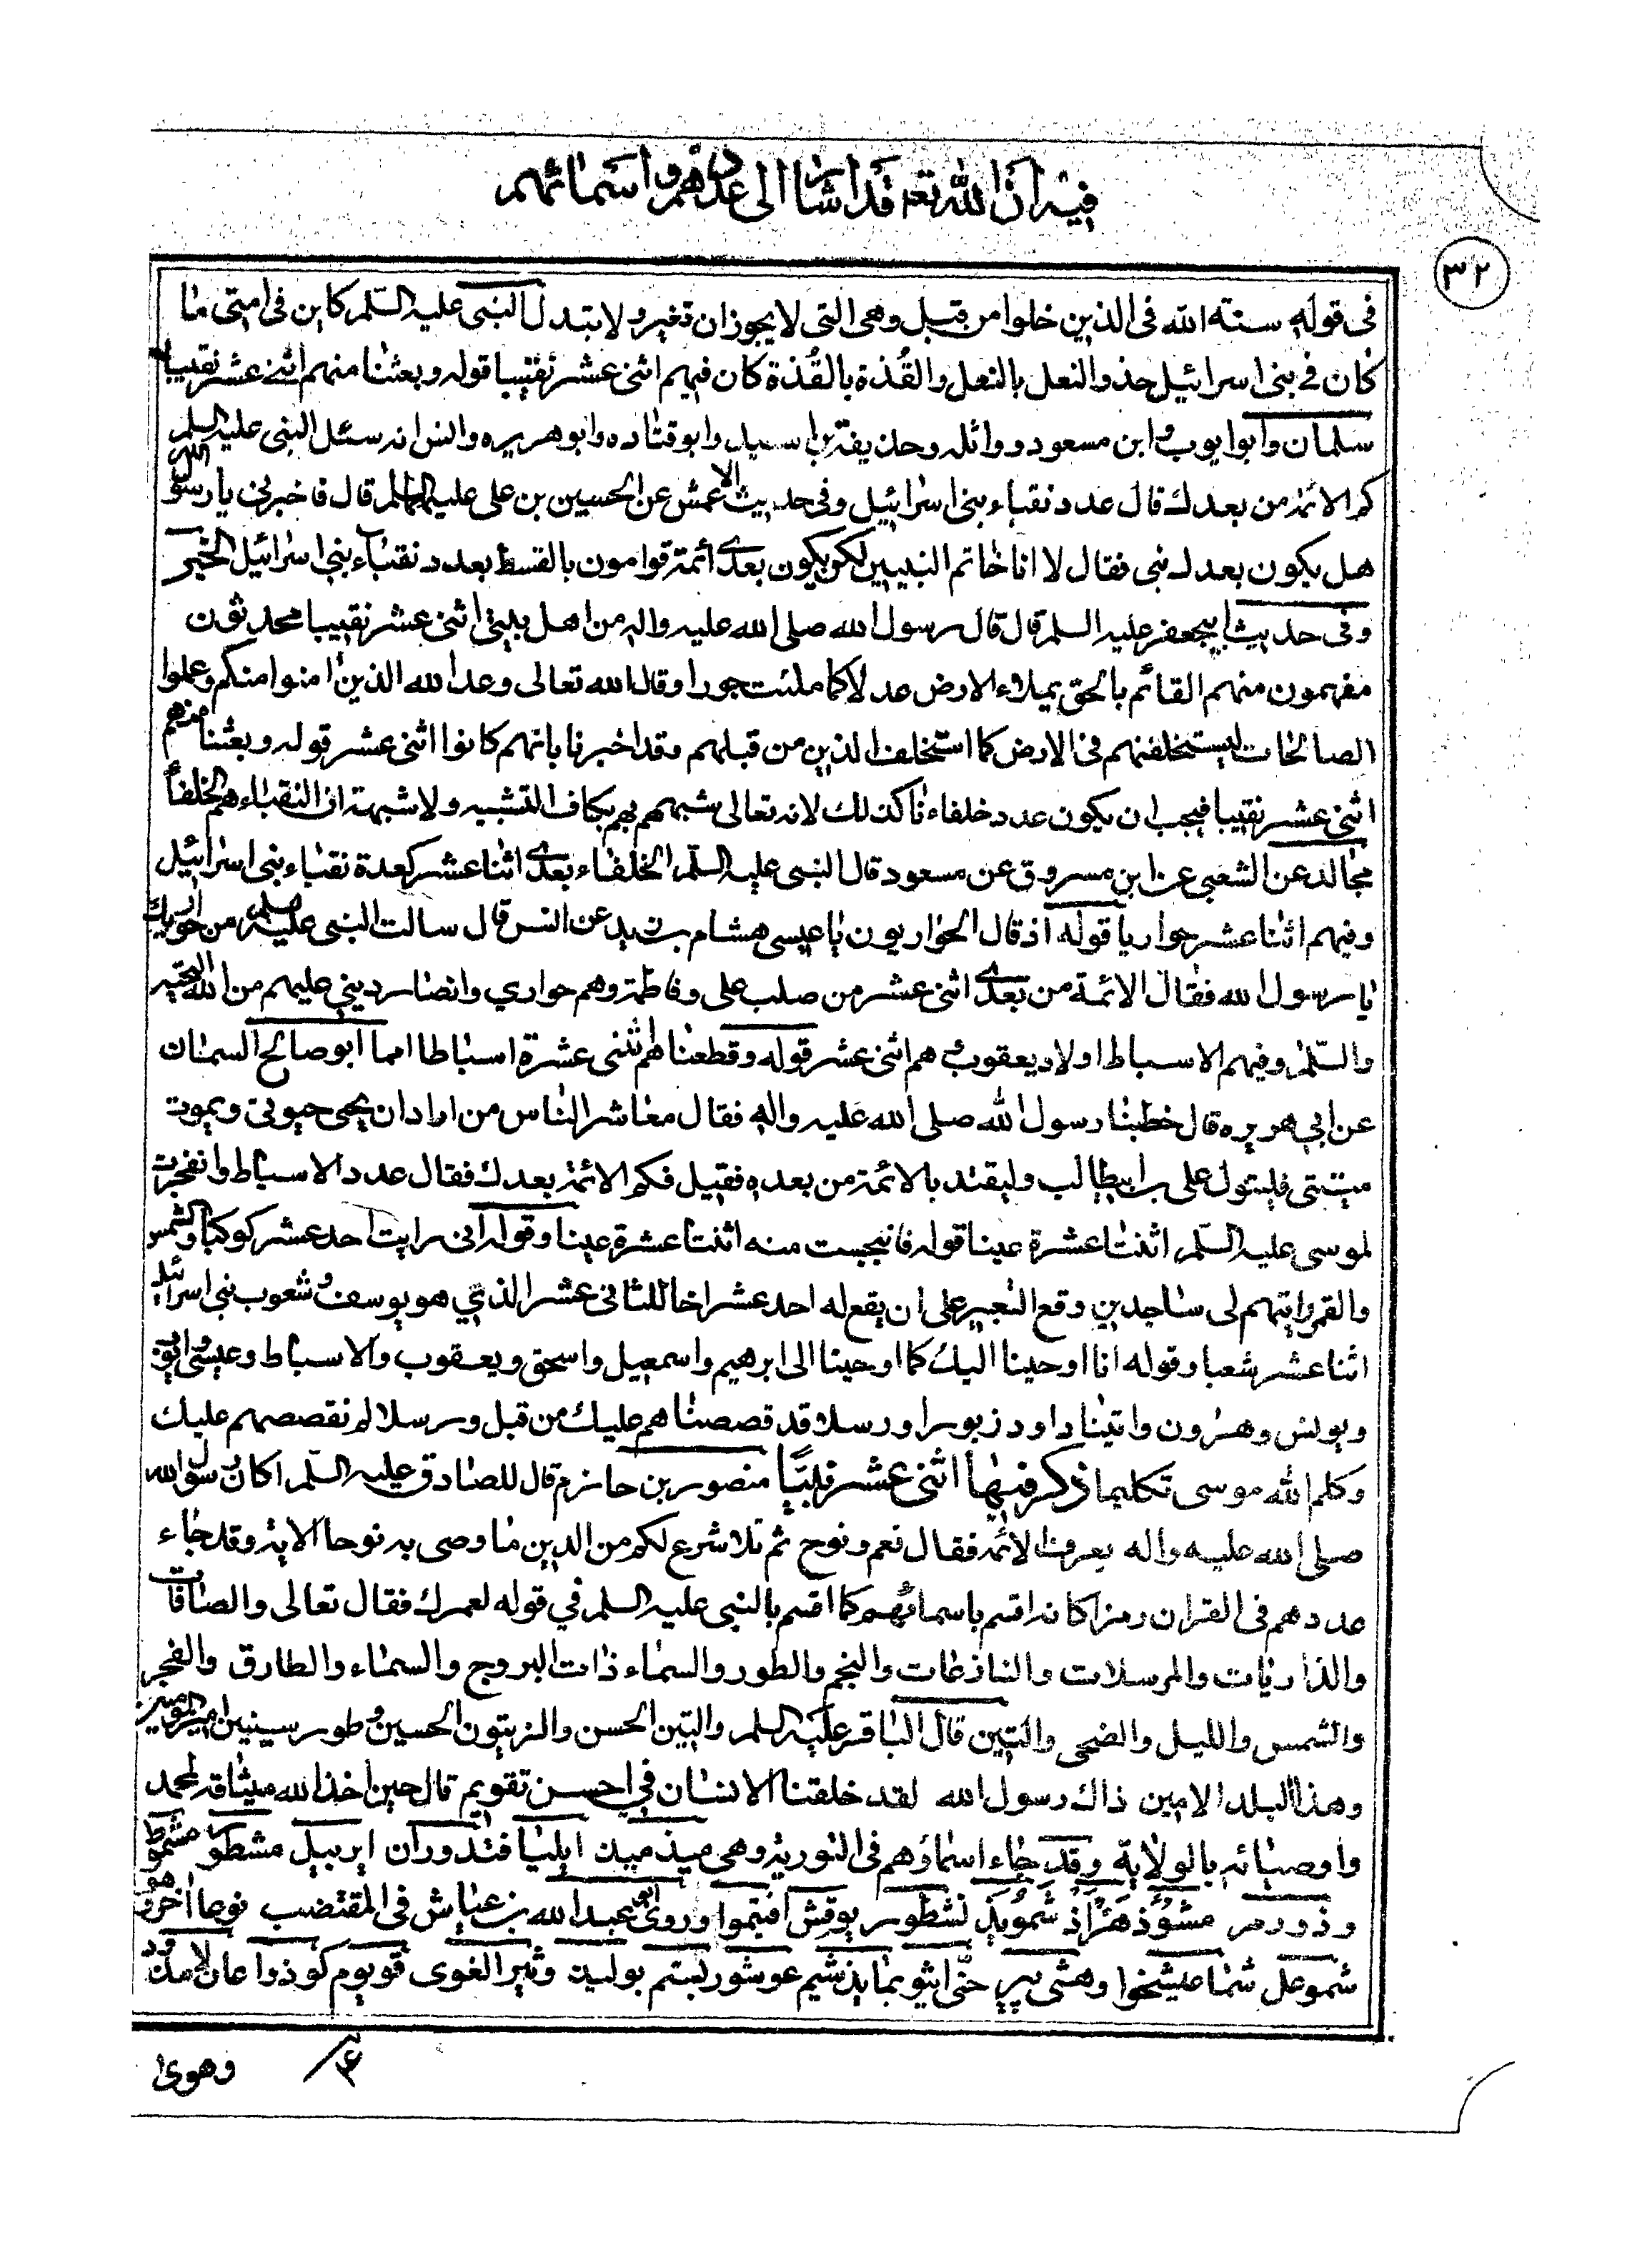 فيه ان الله تع قد اشار الى عددهم واسمائهم
٣٢
فى قوله سنة الله فى الذين خلوا من قبل وهى التى لا يجوز ان تغير ولا تبتدل النبى عليه السلم كاين فى امتى ما
كان فى بنى اسرائيل حذو النعل بالنعل والقُذة بالقُذة كان فيهم اثنى عشر نقيبا قوله وبعثنا منهم اثنى عشر نقيبا
سلمان وابو ايوب وابن مسعود وواثله وحذيفة بن اسيد وابو قتاده وابو هريره وانس انه سئل النبى عليه السلم
كم الائمة من بعدك قال عدد نقباء بنى اسرائيل وفى حديث الاعمش عن الحسين بن على عليهما السلم قال فاخبرنى يا رسول الله
هل يكون بعدك نبى فقال لا انا خاتم النبيين لكن يكون بعدى أئمة قوامون بالقسط بعدد نقباء بنى اسرائيل الخبر
وفى حديث ابيجعفر عليه السلم قال قال رسول الله صلى الله عليه واله من اهل بيتى اثنى عشر نقيبا محدثون
مفهمون منهم القائم بالحق يملاء الارض عدلا كما ملئت جورا وقال الله تعالى وعد الله الذين امنوا منكم وعملوا
الصالحات ليستخلفنهم فى الارض كما استخلف الذين من قبلهم وقد اخبرنا بانهم كانوا اثنى عشر قوله وبعثنا منهم
اثنى عشر نقيبا فيجب ان يكون عدد خلفاءنا كذلك لانه تعالى شبههم بهم بكاف التشبيه ولا شبهة ان النقباء هم الخلفاء
مجالد عن الشعبى عن ابن مسروق عن مسعود قال النبى عليه السلم الخلفاء بعدى اثنا عشر كعدة نقباء بنى اسرائيل
وفيهم اثنا عشر حواريا قوله اذ قال الحواريون يا عيسى هشام بن يد عن انس قال سالت النبى عليه من حواريك
يا رسول الله فقال الائمة من بعدى اثنى عشر من صلب على وفاطمة وهم حوارى وانصار دينى عليهم من الله التحيه
والسلم وفيهم الاسباط اولاد يعقوب وهم اثنى عشر قوله وقطعناهم اثنى عشرة اسباطا امما ابو صالح السمنان
عن ابى هريره قال خطبنا رسول الله صلى الله عليه واله فقال معاشر الناس من اراد ان يحيى حيوتى ويموت
ميتتى فليتول على بن ابيطالب وليقتد بالائمة من بعده فقيل فكم الائمة بعدك فقال عدد الاسباط وانفجرت
لموسى عليه السلم اثنتا عشرة عينا قوله فانبجست منه اثنتا عشرة عينا وقوله انى رايت احد عشر كوكبا والشمس
والقمر رايتهم لى ساجدين وقع التعبير على ان يقع له احد عشر اخا للثانى عشر الذى هو يوسف وشعوب بنى اسرائيل
اثنا عشر شعبا وقوله انا اوحينا اليك كما اوحينا الى ابرهيم واسمعيل واسحق ويعقوب والاسباط وعيسى وايوب
ويونس وهرون واتينا داود زبورا ورسلا قد قصصناهم عليك من قبل ورسلا لم نقصصهم عليك
وكلم الله موسى تكليما ذكر فيها اثنى عشر نبيًا منصور بن حازم قال للصادق عليه السلم اكان رسول الله
صلى الله عليه واله يعرف الائمة فقال نعم ونوح ثم تلا شرع لكم من الدين ما وصى به نوحا الاية وقد جاء
عددهم فى القران رمزا كانه اقسم باسمائهم كما اقسم بالنبى عليه السلم في قوله لعمرك فقال تعالى والصافات
والذاريات والمرسلات والنازعات والنجم والطور والسماء ذات البروج والسماء والطارق والفجر
والشمس والليل والضحى والتين قال الباقر عليه السلم والتين الحسن والزيتون الحسين وطور سينين امير المومنين
وهذا البلد الامين ذاك رسول الله لقد خلقنا الانسان في احسن تقويم قال حين اخذ الله ميثاقه لمحمد
واوصيائه بالولاية وقد جاء اسماؤهم فى التورية وهى ميذ ميذ ايليا فتدوران ايربيل مشطور مشموط
وذو رمر مشوُذ هَزاذ شمويذ نشطور بوقش افيتموا وروى عبد الله بن عياش فى المقتضب نوعا اخر وهو
شموعل شماعيشخوا وهشى يبر حتى ايثو بمايذ شيم عوشور بستم بوليذ وثير الغوى قوبوم كوذوا عان لامذ
وهوى